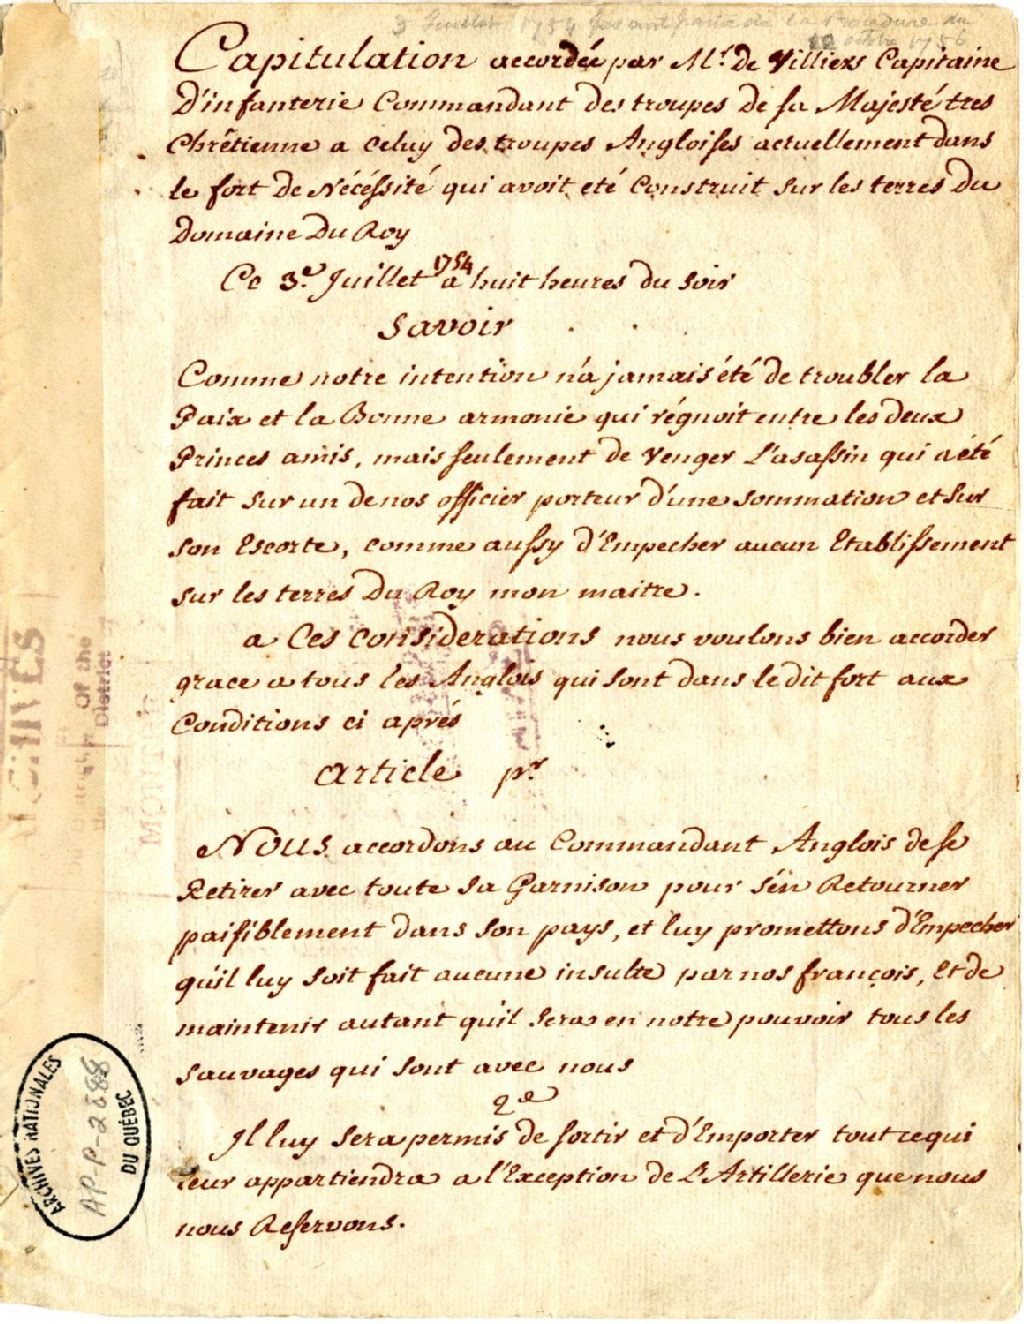 3 Juillet 1754
octobre 1756
Capitulation accordée par Mr. de Villiers Capitaine
D'infanterie Commandant des troupes de sa Majesté tres
Chrêtienne a celuy des troupes Angloises actuellement dans
le fort de Nécéssité qui avoit eté Construit sur les terres du
Domaine Du Roy
Ce 3e. Juillet 1754 a huit heures du soir
Savoir
Comme notre intention n'a jamais été de troubler la
Paix et la Bonne armonie qui régnoit entre les deux
Princes amis, mais seulement de Venger L'asassin qui a été
fait sur un de nos officier porteur d'une sommation et sur
son Escorte, comme aussy d'Empecher aucun Etablissement
sur les terres Du Roy mon maitre.
a Ces considerations nous voulons bien accorder
grace a tous les Anglois qui sont dans le dit fort aux
Conditions ci aprés
Article pr.
Nous accordons au Commandant Anglois de se
Retirer avec toute sa Garnison pour s'én Retourner
paisiblement dans son pays, et luy promettons d'Empecher
qu'il luy soit fait aucune insulte par nos françois, et de
maintenir autant qu'il sera en notre pouvoir tous les
sauvages qui sont avec nous
2e
Il luy sera permis de sortir et d'Emporter tout ce qui
leur appartiendra a l'Exception de L'Artillerie que nous
nous Reservons.
ARCHIVES
Of the
District
ARCHIVES NATIONALES
AP-P-2688
DU QUÉBEC